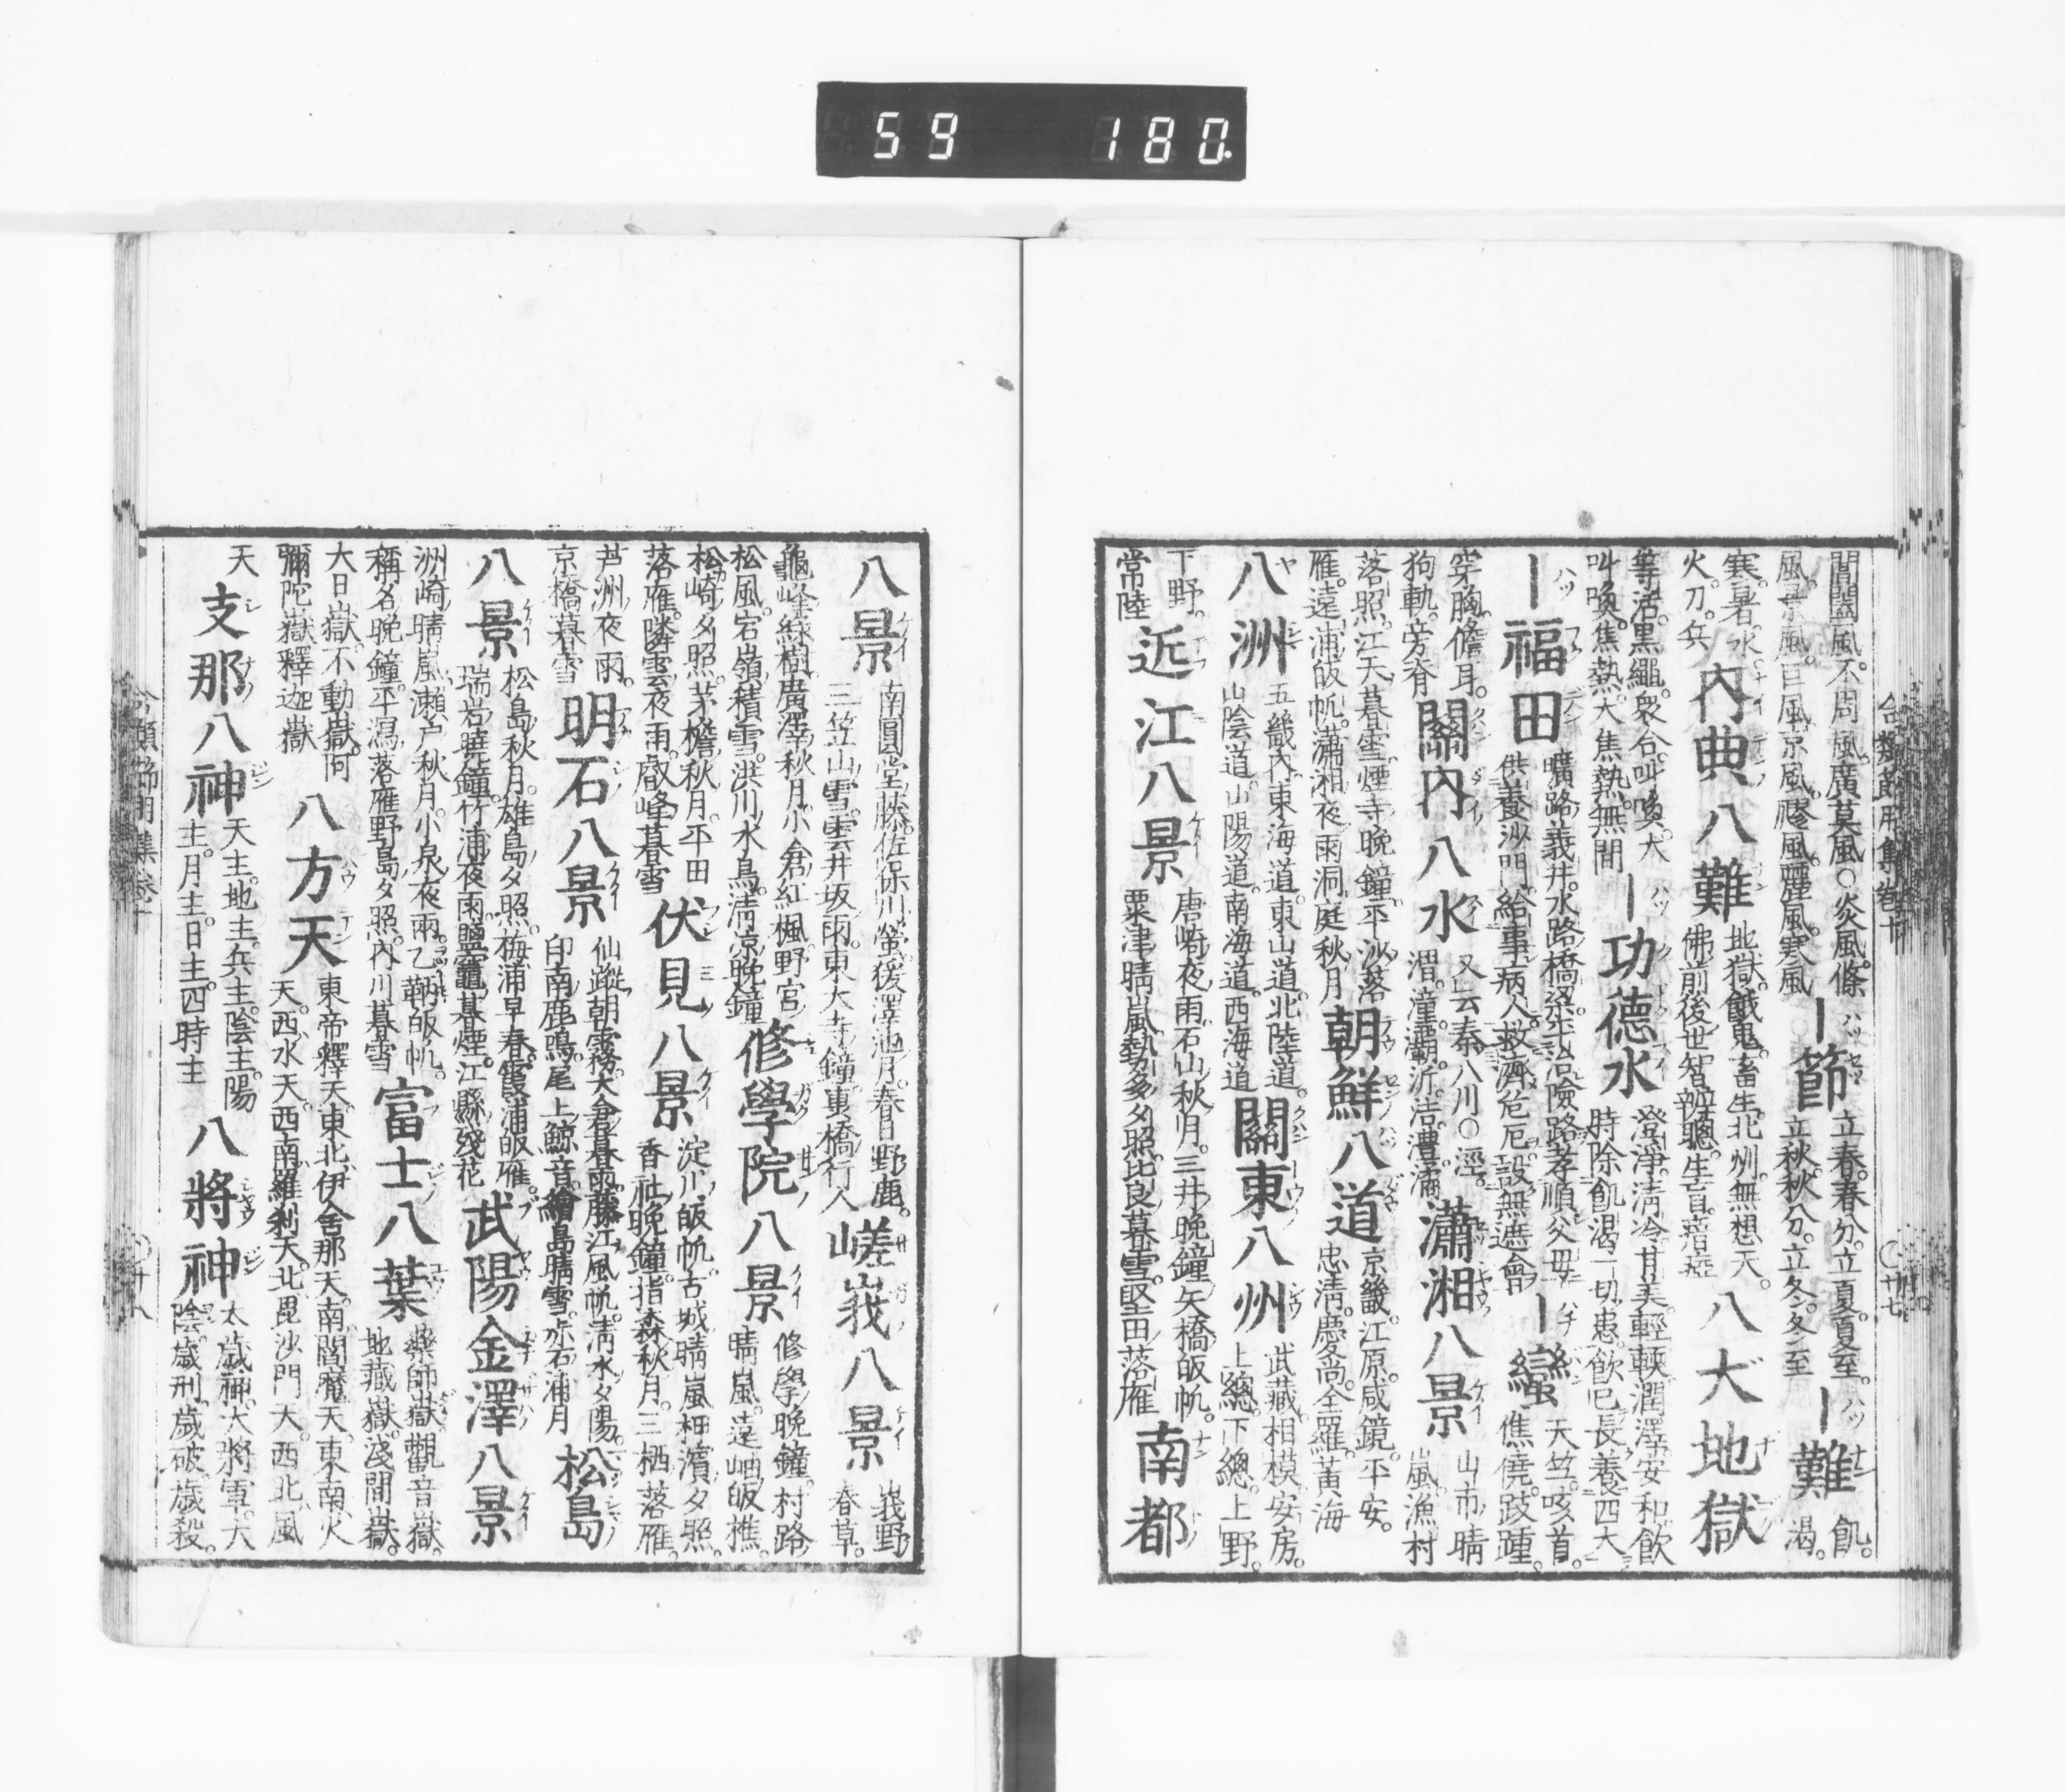 59 180
合類節用集卷十
〇廿七
閶闔風。不周風。廣莫風〇炎風。條
風。景風。巨風。京風。飂風。麗風。寒風
｜節
立春。春分。立夏。夏至。
立秋。秋分。立冬。冬至
｜難
飢。
渴。
寒。暑。水。
火。刀。兵
內典八難
地獄。餓鬼。畜生。北州。無想天。
佛前後。世智辯聰。生盲瘖瘂
八大地獄
等活。黑繩。衆合。叫喚。大
叫喚。焦熱。大焦熱。無間
｜功德水
澄淨。淸冷。甘美。輕軟。潤澤。安和。飲
時除飢渴一切患。飲已長養四大
｜福田
曠路義井。水路橋梁。平治險路。孝順父母。
供養沙門。給事病人。救濟危厄。設無遮會
｜蠻
天竺。咳首。
僬僥。跂踵。
穿胸。儋耳。
狗軌。旁脊
關內八水
又云秦八川〇涇。
渭。滻。灞。沂。潔。灃。滴
瀟湘八景
山市晴
嵐。漁村
落照。江天暮雪。煙寺晩鐘。平沙落
雁。遠浦皈帆。瀟湘夜雨。洞庭秋月
朝鮮八道
京畿。江原。咸鏡。平安。
忠淸。慶尚。全羅。黃海
八洲
五畿內。東海道。東山道。北陸道。
山陰道。山陽道。南海道。西海道
關東八州
武藏。相模。安房。
上總。下總。上野。
下野。
常陸
近江八景
唐崎夜雨。石山秋月。三井晩鐘。矢橋皈帆。
粟津晴嵐。勢多夕照。比良暮雪。堅田落雁
南都
八景
南圓堂藤。佐保川螢。猿澤池月。春日野鹿。
三笠山雪。雲井坂雨。東大寺鐘。轟橋行人
嵯峩八景
峩野
春草。
龜峰綠樹。廣澤秋月。小倉紅楓。野宮
松風。宕嶺積雪。洪川水鳥。淸凉晩鐘
修學院八景
修學晩鐘。村路
晴嵐。遠岫皈樵。
松崎夕照。茅檐秋月。平田
落雁。隣雲夜雨。叡峰暮雪
伏見八景
淀川皈帆。古城晴嵐。栂濱夕照。
香社晩鐘。指森秋月。三栖落雁。
芦洲夜雨。
京橋暮雪
明石八景
仙蹤朝霧。大倉暮雨。藤江風帆。淸水夕陽。
印南鹿鳴。尾上鯨音。繪島晴雪。赤石浦月
松島
八景
松島秋月。雄島夕照。梅浦早春。霞浦皈雁。
瑞岩曉鐘。竹浦夜雨。鹽竈暮煙。江縣殘花
武陽金澤八景
洲崎晴嵐。瀬戸秋月。小泉夜雨。乙鞆皈帆。
稱名晩鐘。平瀉落雁。野島夕照。內川暮雪
富士八葉
藥師嶽。觀音嶽。
地藏嶽。淺間嶽。
大日嶽。不動嶽。阿
彌陀嶽。釋迦嶽
八方天
東帝釋天。東北伊舍那天。南閻魔天。東南火
天。西水天。西南羅刹天。北毘沙門天。西北風
天
支那八神
天主。地主。兵主。陰主。陽
主。月主。日主。四時主
八將神
太歳神。大將軍。大
陰。歳刑。歳破。歳殺。
合類節用集卷十
〇廿八